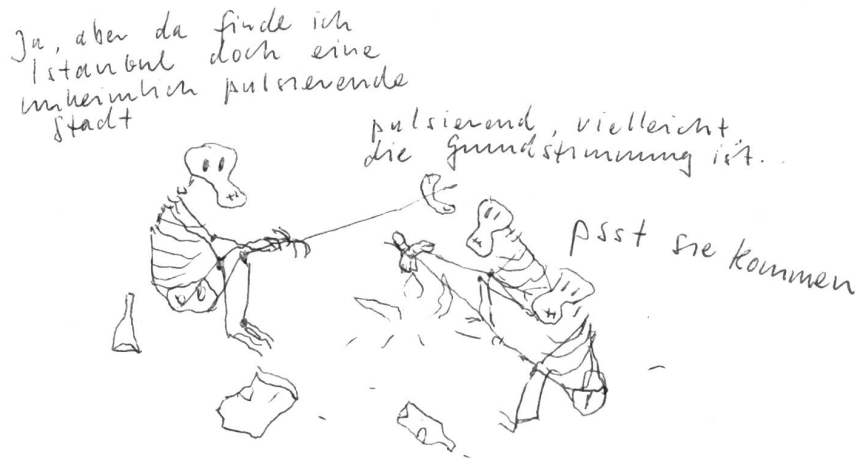 Ja, aber da finde ich
Istanbul doch eine
unheimlich pulsierende
Stadt
pulsierend, vielleicht,
die Grundstimmung ist...
psst sie kommen